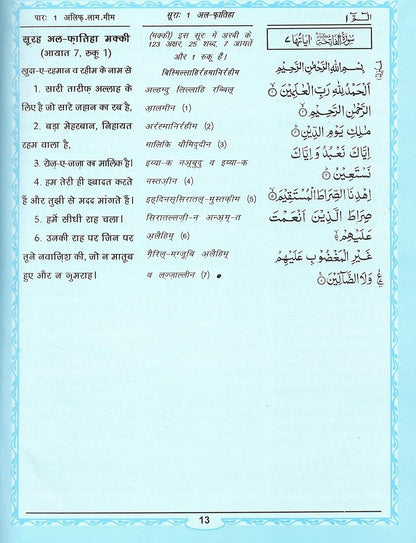 पारः 1 अलिफ़.लाम.मीम
सूराः 1 अल-फ़ातिहा
الٓمّٓ ١
सूरह अल-फ़ातिहा मक्की
(आयात 7, रुकू 1)
ख़ुदा-ए-रहमान व रहीम के नाम से
1. सारी तारीफ़ अल्लाह के
लिए है जो सारे जहान का रब है,
2. बड़ा मेहरबान, निहायत
रहम वाला है,
3. रोज़-ए-जज़ा का मालिक है।
4. हम तेरी ही इबादत करते
हैं और तुझी से मदद मांगते हैं।
5. हमें सीधी राह चला।
6. उनकी राह पर जिन पर
तूने नवाज़िश की, जो न मातूब
हुए और न गुमराह।
(मक्की) इस सूरः में अरबी के
123 अक्षर, 25 शब्द, 7 आयतें
और 1 रुकू हैं।
बिस्मिल्लाहिर्रहमानिर्रहीम
अल्हम्दु लिल्लाहि रब्बिल्
आ़लमीन (1)
अर्रहमानिर्रहीम (2)
मालिकि यौमिद्दीन (3)
इय्या-क नअ़्बुदु व इय्या-क
नस्तअ़ीन (4)
इह्दिनस्सिरातल्-मुस्तक़ीम (5)
सिरातल्लज़ी-न अन्अ़म्-त
अ़लैहिम् (6)
ग़ैरिल्-मग़्ज़ूबि अ़लैहिम्
व लज़्ज़ाल्लीन (7)
سُوْرَةُ الْفَاتِحَةِ اٰيَاتُهَا ٧
بِسْمِ اللّٰهِ الرَّحْمٰنِ الرَّحِيْمِ
اَلْحَمْدُ لِلّٰهِ رَبِّ الْعٰلَمِيْنَ ۝١
الرَّحْمٰنِ الرَّحِيْمِ ۝٢
مٰلِكِ يَوْمِ الدِّيْنِ ۝٣
اِيَّاكَ نَعْبُدُ وَ اِيَّاكَ
نَسْتَعِيْنُ ۝٤
اِهْدِنَا الصِّرَاطَ الْمُسْتَقِيْمَ ۝٥
صِرَاطَ الَّذِيْنَ اَنْعَمْتَ
عَلَيْهِمْ ۝٦
غَيْرِ الْمَغْضُوْبِ عَلَيْهِمْ
وَلَا الضَّآلِّيْنَ ۝٧
13